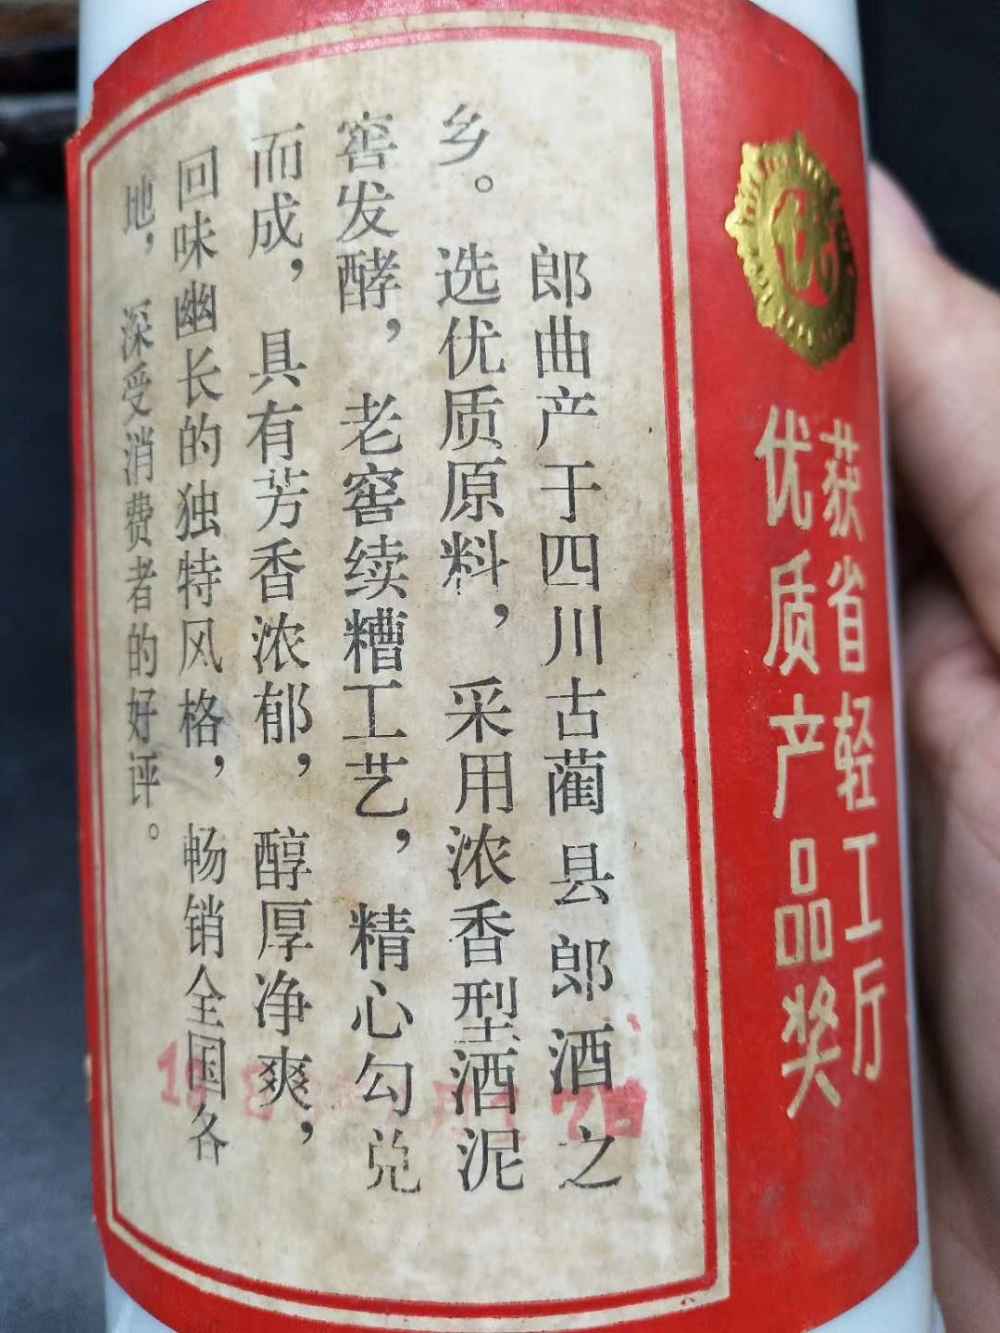 优
获省轻工厅
优质产品奖
郎曲产于四川古蔺县郎酒之
乡。选优质原料，采用浓香型酒泥
窖发酵，老窖续糟工艺，精心勾兑
而成，具有芳香浓郁，醇厚净爽，
回味幽长的独特风格，畅销全国各
地，深受消费者的好评。